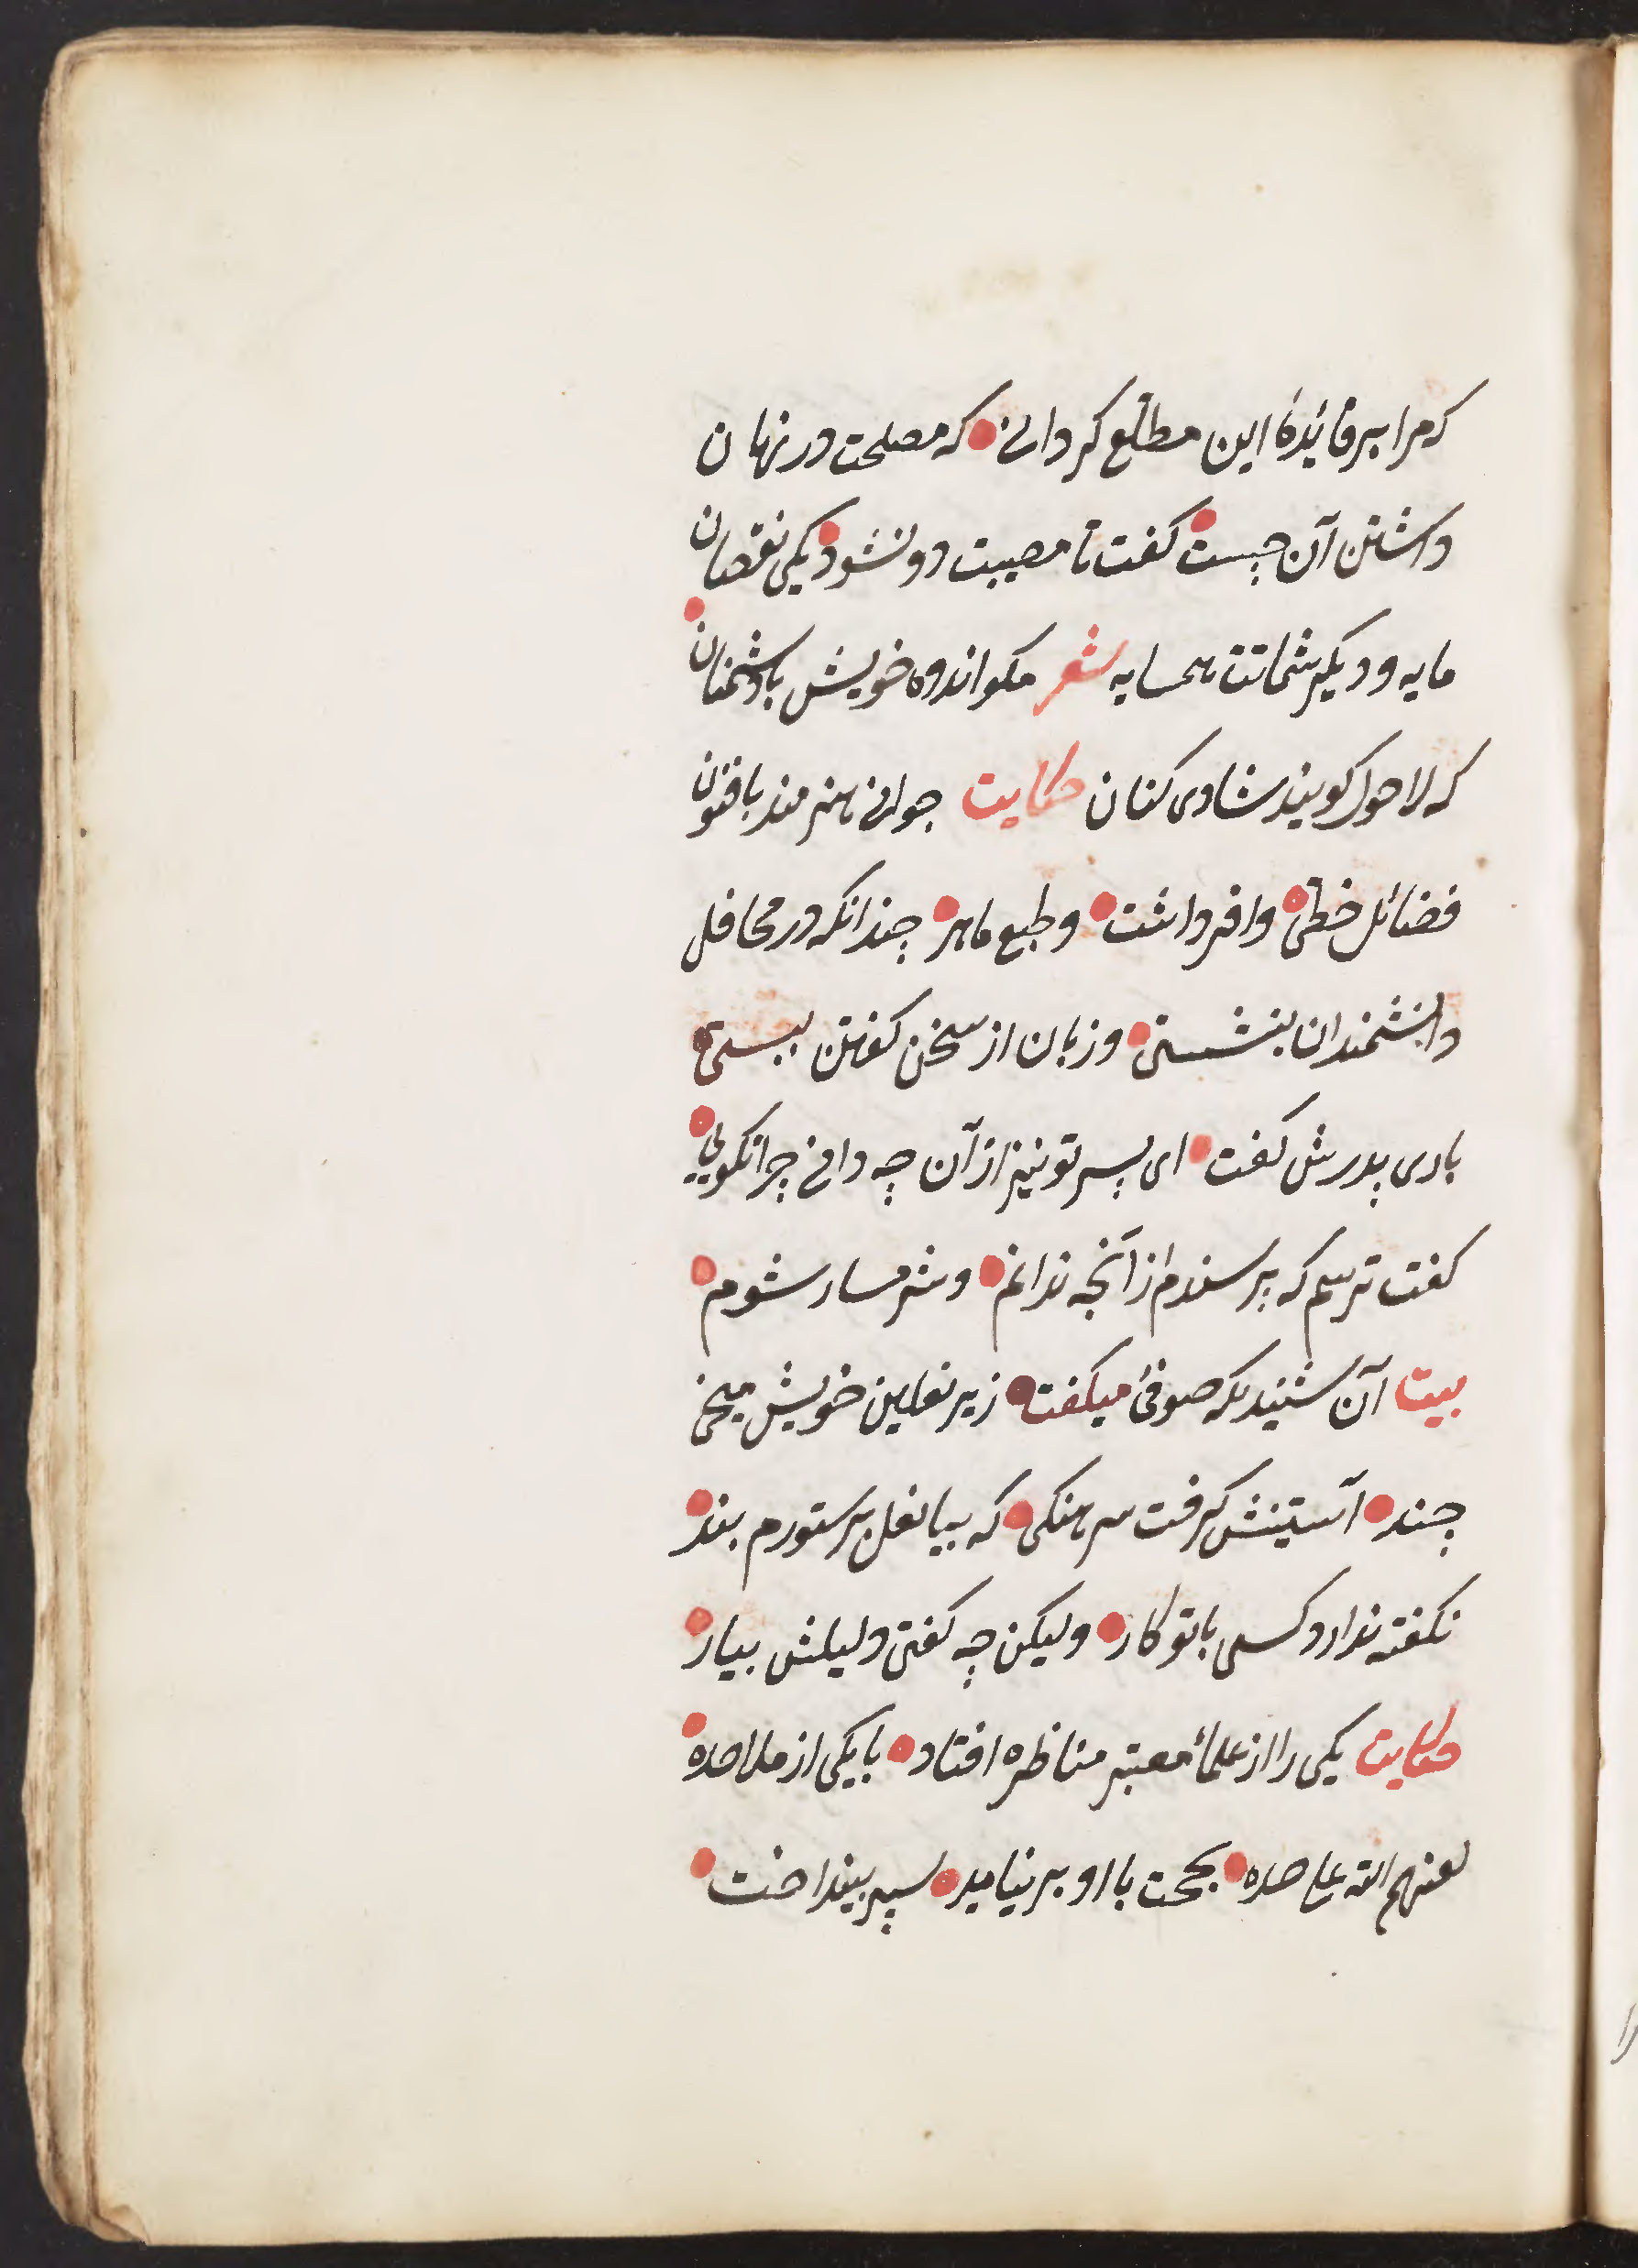 که مرا بر فائدهٔ این مطلع کردانی که مصلحت در نهان
داشتن آن چیست کفت تا مصیبت دو نشود یکی نقصان
مایه و دیکر شماتت همسایه شعر مکو اندوه خویش با دشمنان
که لا حول کویند شادی کنان حکایت جوانی هنرمند با فنون
فضائل حظی وافر داشت و طبع ماهر چندانکه در محافل
دانشمندان بنشستی و زبان از سخن کفتن ببستی
باری پدرش کفت ای پسر تو نیز از آن چه دانی چرا نکویی
کفت ترسم که پرسندم از آنچه ندانم و شرمسار شوم
بیت آن شنیدی که صوفئ میکفت زیر نعلین خویش میخی
چند آستینش کرفت سرهنکی که بیا نعل بر ستورم بند
نکفته ندارد کسی با تو کار ولیکن چه کفتی دلیلش بیار
حکایت یکی را از علمائ معتبر مناظره افتاد با یکی از ملاحده
لعنهم الله علی حده بحجت با او بر نیامد سپر بینداخت